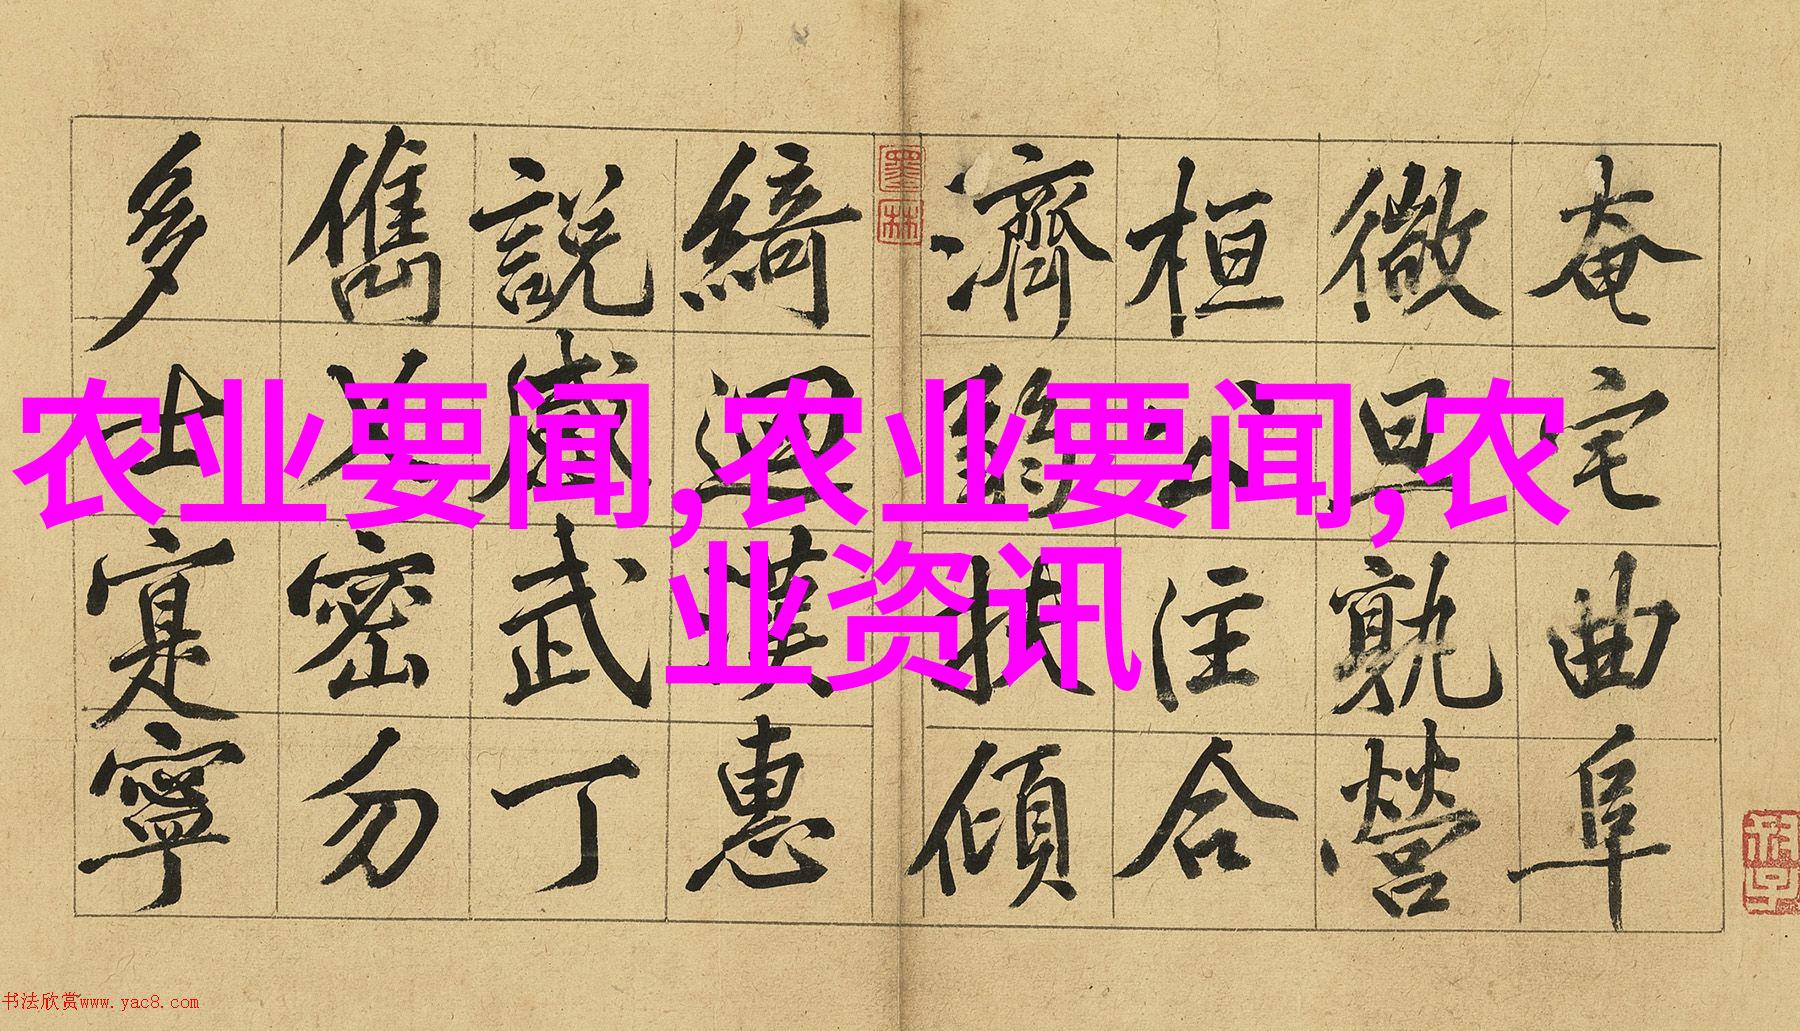 农业要闻,农业要闻,农
业资讯
奄宅曲阜
微旦孰營
桓合
濟扶傾
綺迴漢惠
說感武丁
儁乂密勿
多士寔寧
墨林
书法欣赏www.yac8.com